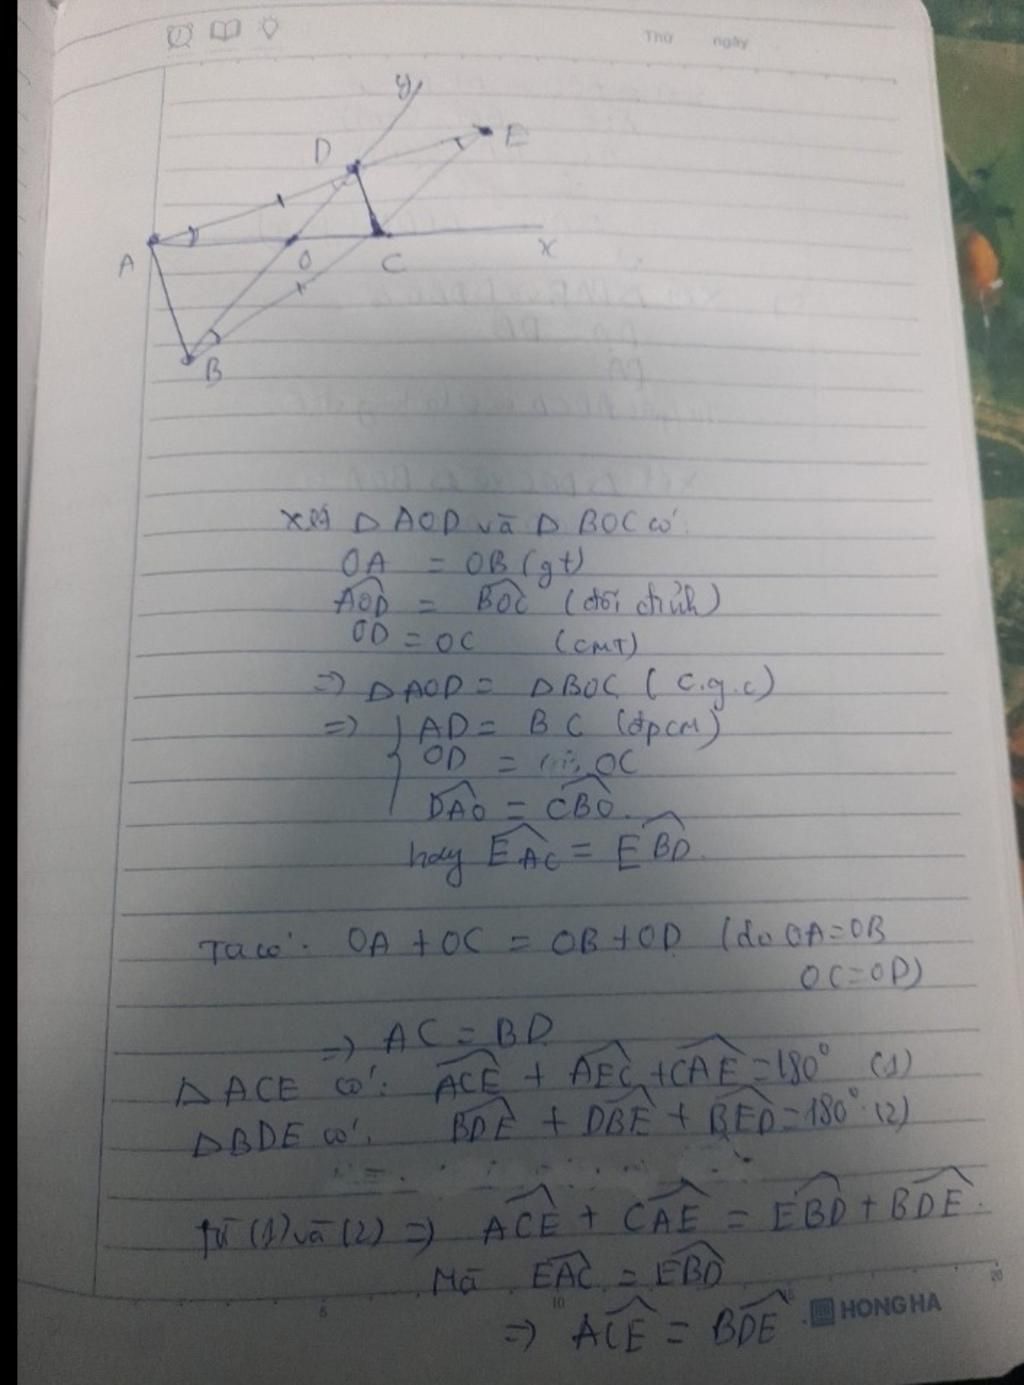 Thứ ngày
y
D
E
A
O
C
x
B
Xét Δ AOD và Δ BOC có:
OA = OB (gt)
$\widehat{AOD}$ = $\widehat{BOC}$ (đối đỉnh)
OD = OC (CMT)
=> Δ AOD = Δ BOC (c.g.c)
=> { AD = BC (đpcm)
OD = OC
$\widehat{DAO}$ = $\widehat{CBO}$.
hay $\widehat{EAC}$ = $\widehat{EBD}$.
Ta có: OA + OC = OB + OD (do OA = OB
OC = OD)
=> AC = BD
Δ ACE có: $\widehat{ACE}$ + $\widehat{AEC}$ + $\widehat{CAE}$ = 180° (1)
Δ BDE có: $\widehat{BDE}$ + $\widehat{DBE}$ + $\widehat{BED}$ = 180° (2)
Từ (1) và (2) => $\widehat{ACE}$ + $\widehat{CAE}$ = $\widehat{EBD}$ + $\widehat{BDE}$.
Mà $\widehat{EAC}$ = $\widehat{EBD}$
=> $\widehat{ACE}$ = $\widehat{BDE}$.
5 10 15 20
HONG HA